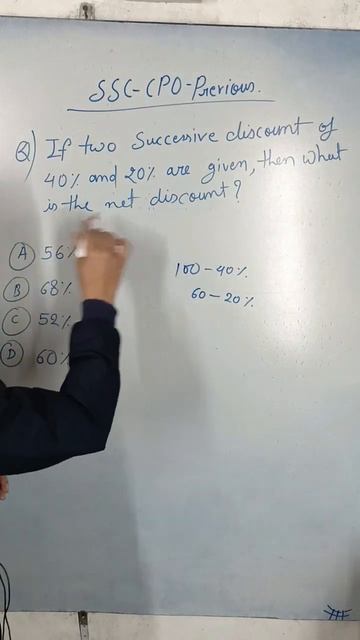 SSC-CPO-Previous.
Q) If two Successive discount of
40% and 20% are given, then what
is the net discount?
A 56%
B 68%
C 52%
D 60%
100-40%
60-20%